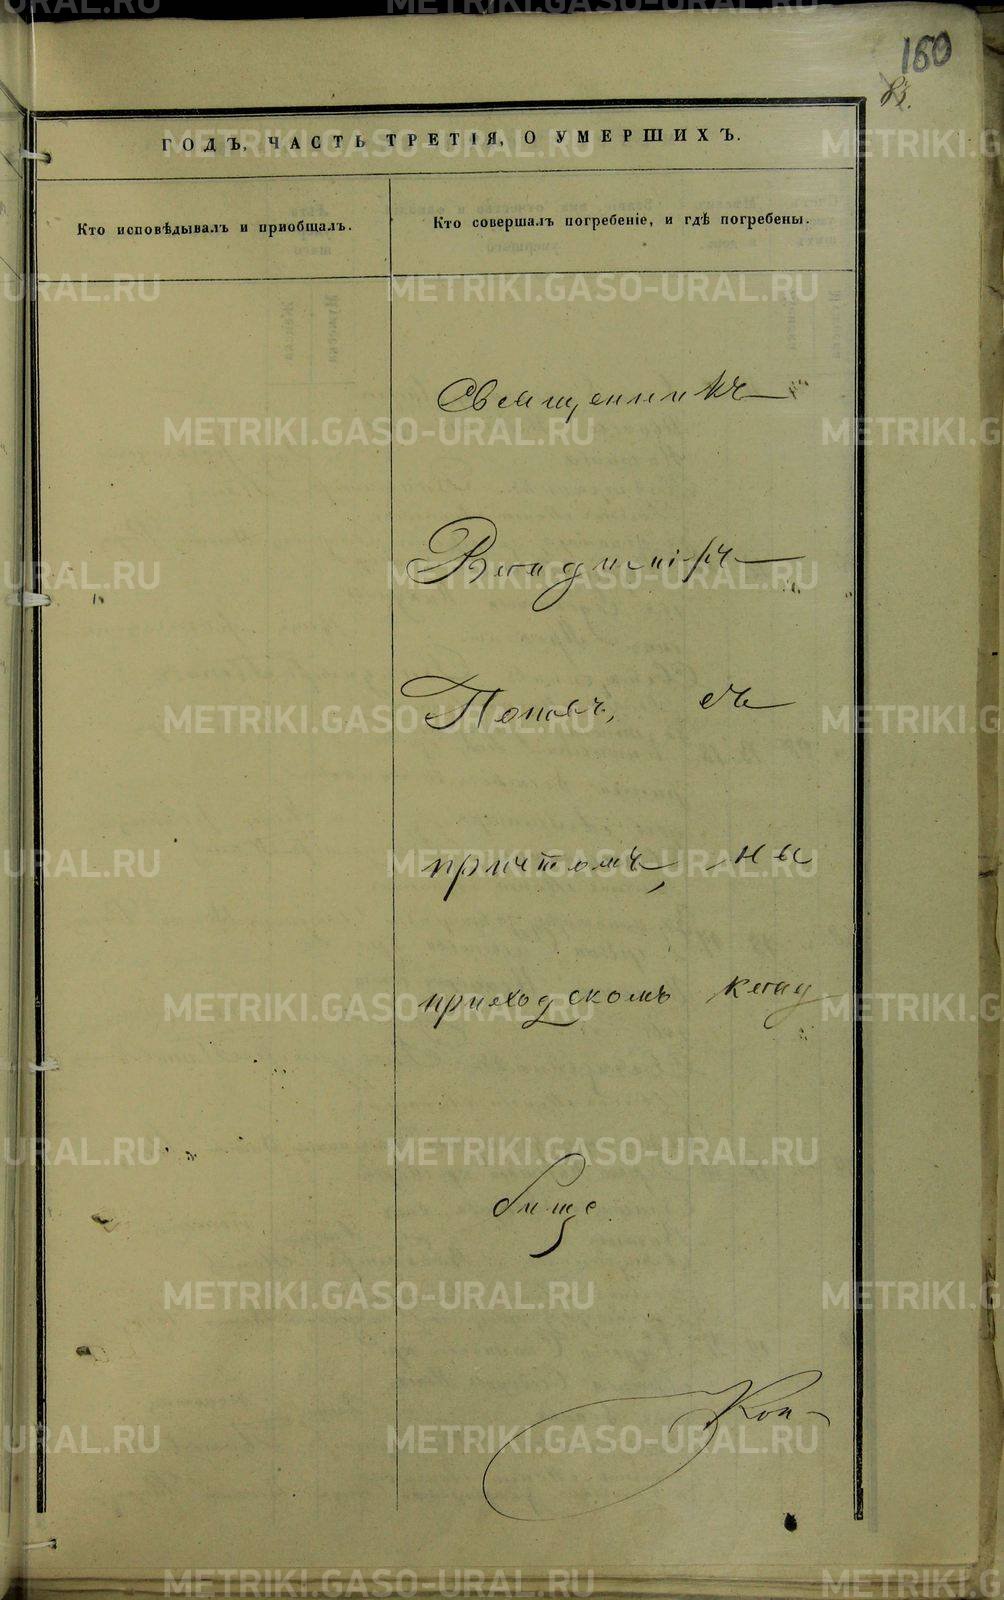 160
83.
ГОДЪ, ЧАСТЬ ТРЕТІЯ, О УМЕРШИХЪ.
Кто исповѣдывалъ и пріобщалъ.
Кто совершалъ погребеніе, и гдѣ погребены.
Священникъ
Владиміръ
Поповъ, съ
причтомъ, на
приходскомъ клад
бище
Коп-
METRIKI.GASO-URAL.RU